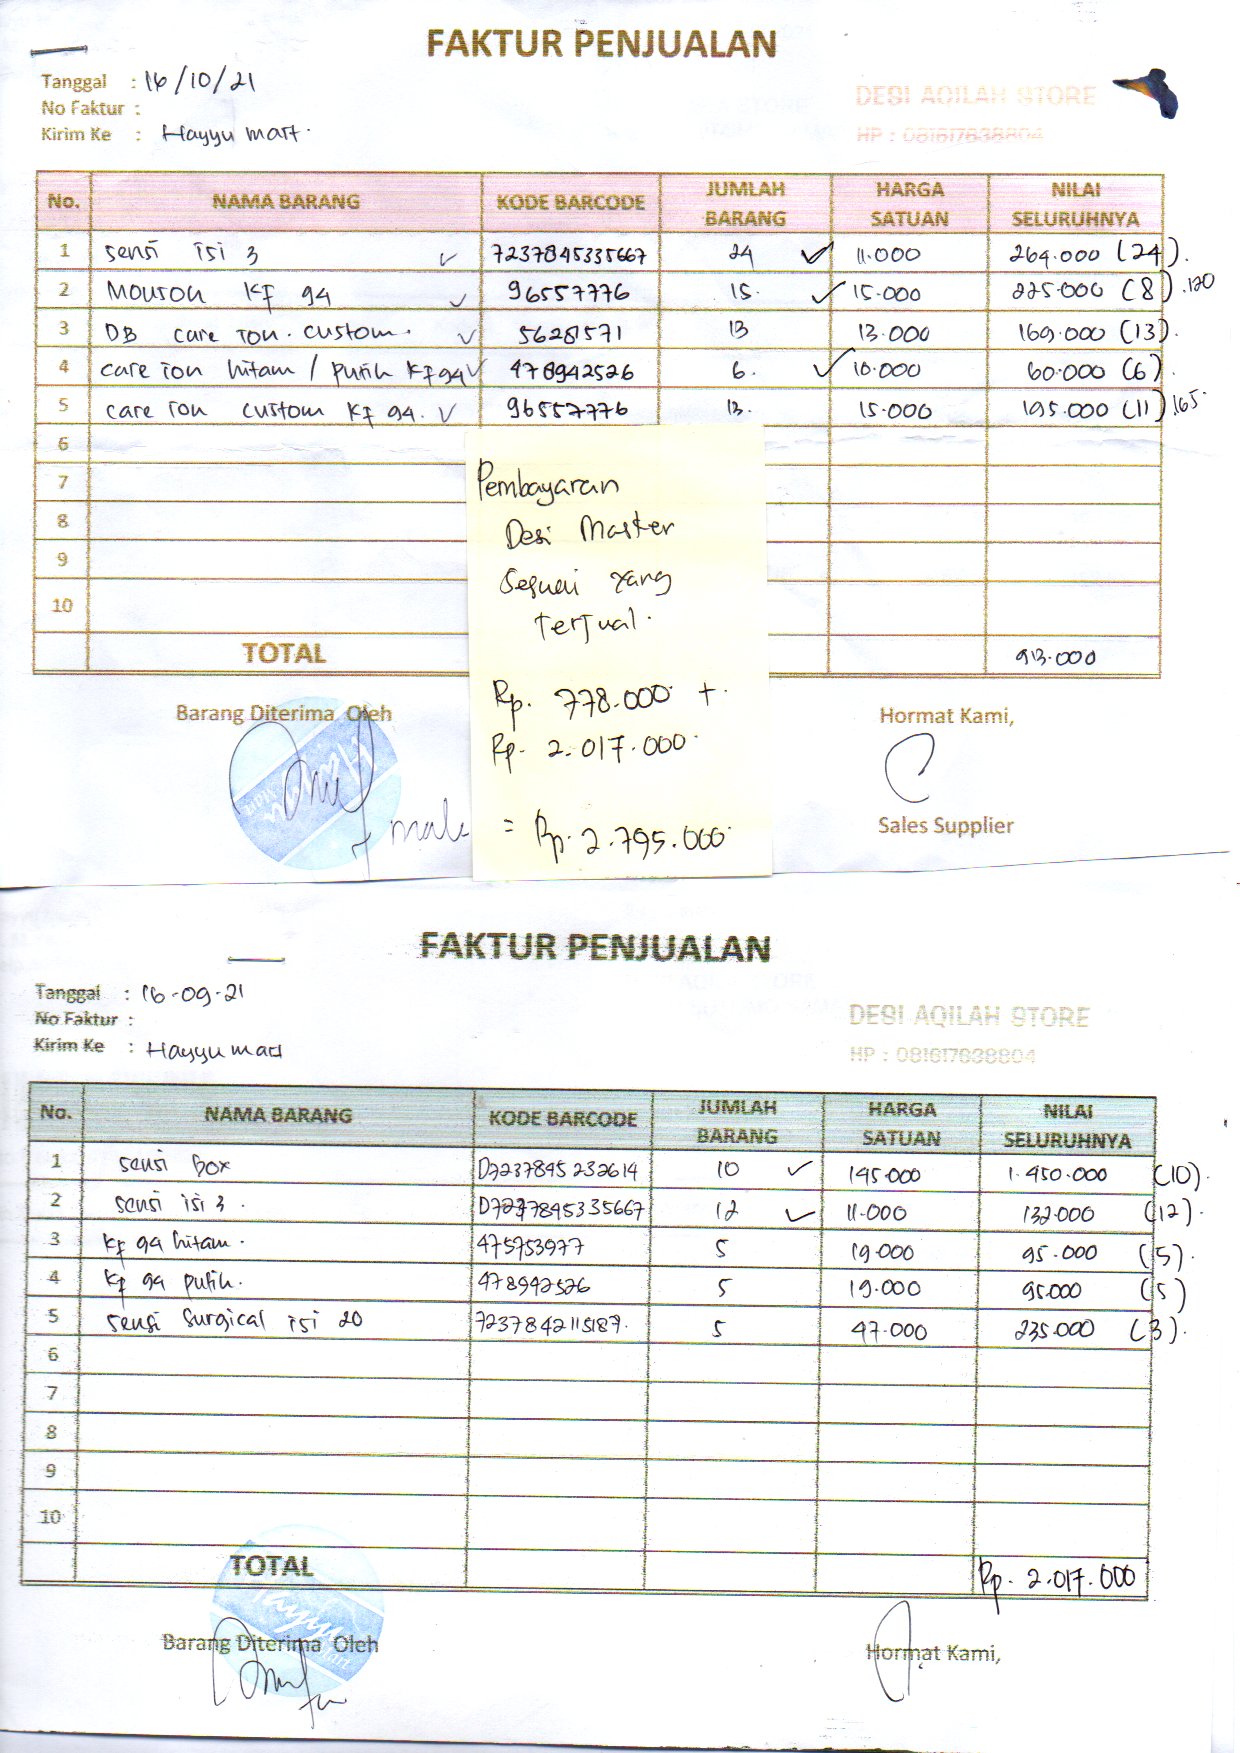 FAKTUR PENJUALAN
Tanggal : 16/10/21
No Faktur :
Kirim Ke : Hayyu mart.
DESI AQILAH STORE
HP : 081617638804
No. NAMA BARANG KODE BARCODE JUMLAH BARANG HARGA SATUAN NILAI SELURUHNYA
1 sensi isi 3 ✓ 7237845335667 24 ✓ 11.000 264.000 (24).
2 Mouson KF 94 ✓ 96557776 15. ✓ 15.000 225.000 (8) .120
3 DB care ion. custom. ✓ 56281571 13 13.000 169.000 (13).
4 care ion hitam / putih KF94 ✓ 478942526 6. ✓ 10.000 60.000 (6)
5 care ion custom KF 94. ✓ 96557776 13. 15.000 195.000 (11) .165.
6
7
8
9
10
TOTAL 913.000
Pembayaran
Desi Master
Sesuai yang
terjual.
Rp. 778.000 +
Rp. 2.017.000
= Rp. 2.795.000
Barang Diterima Oleh
Hormat Kami,
Sales Supplier
FAKTUR PENJUALAN
Tanggal : 16-09-21
No Faktur :
Kirim Ke : Hayyu mart
DESI AQILAH STORE
HP : 081617638804
No. NAMA BARANG KODE BARCODE JUMLAH BARANG HARGA SATUAN NILAI SELURUHNYA
1 sensi Box D7237845232614 10 ✓ 145.000 1.450.000 (10).
2 sensi isi 3. D7237845335667 12 ✓ 11.000 132.000 (12).
3 KF 94 hitam. 475753977 5 19.000 95.000 (5).
4 KF 94 putih. 478942526 5 19.000 95.000 (5)
5 sensi surgical isi 20 7237842115187. 5 47.000 235.000 (3).
6
7
8
9
10
TOTAL Rp. 2.017.000
Barang Diterima Oleh
Hormat Kami,